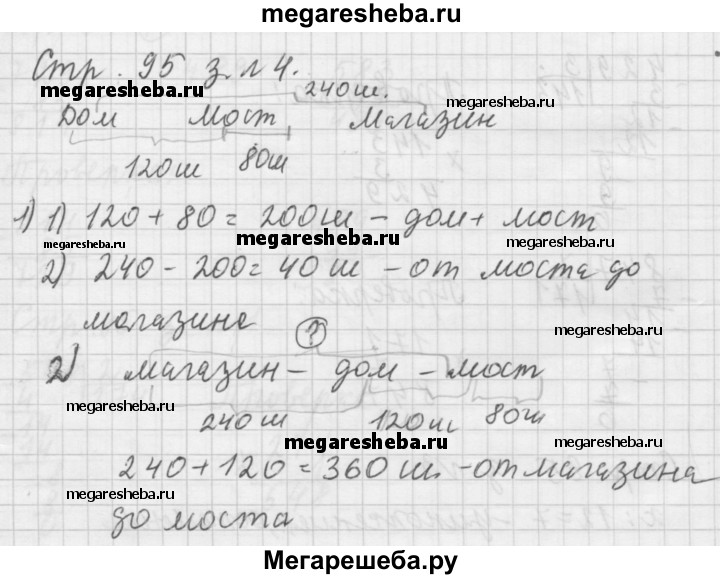 megaresheba.ru
Стр. 95 з. №4.
megaresheba.ru 240 ш. megaresheba.ru
Дом Мост Магазин
120 ш 80 ш
1) 1) 120 + 80 = 200 ш - дом + мост
megaresheba.ru megaresheba.ru megaresheba.ru
2) 240 - 200 = 40 ш - от моста до
магазина ?
megaresheba.ru
2) магазин - дом - мост
megaresheba.ru megaresheba.ru
240 ш 120 ш 80 ш
megaresheba.ru
240 + 120 = 360 ш. - от магазина
megaresheba.ru megaresheba.ru
до моста
Мегарешеба.ру